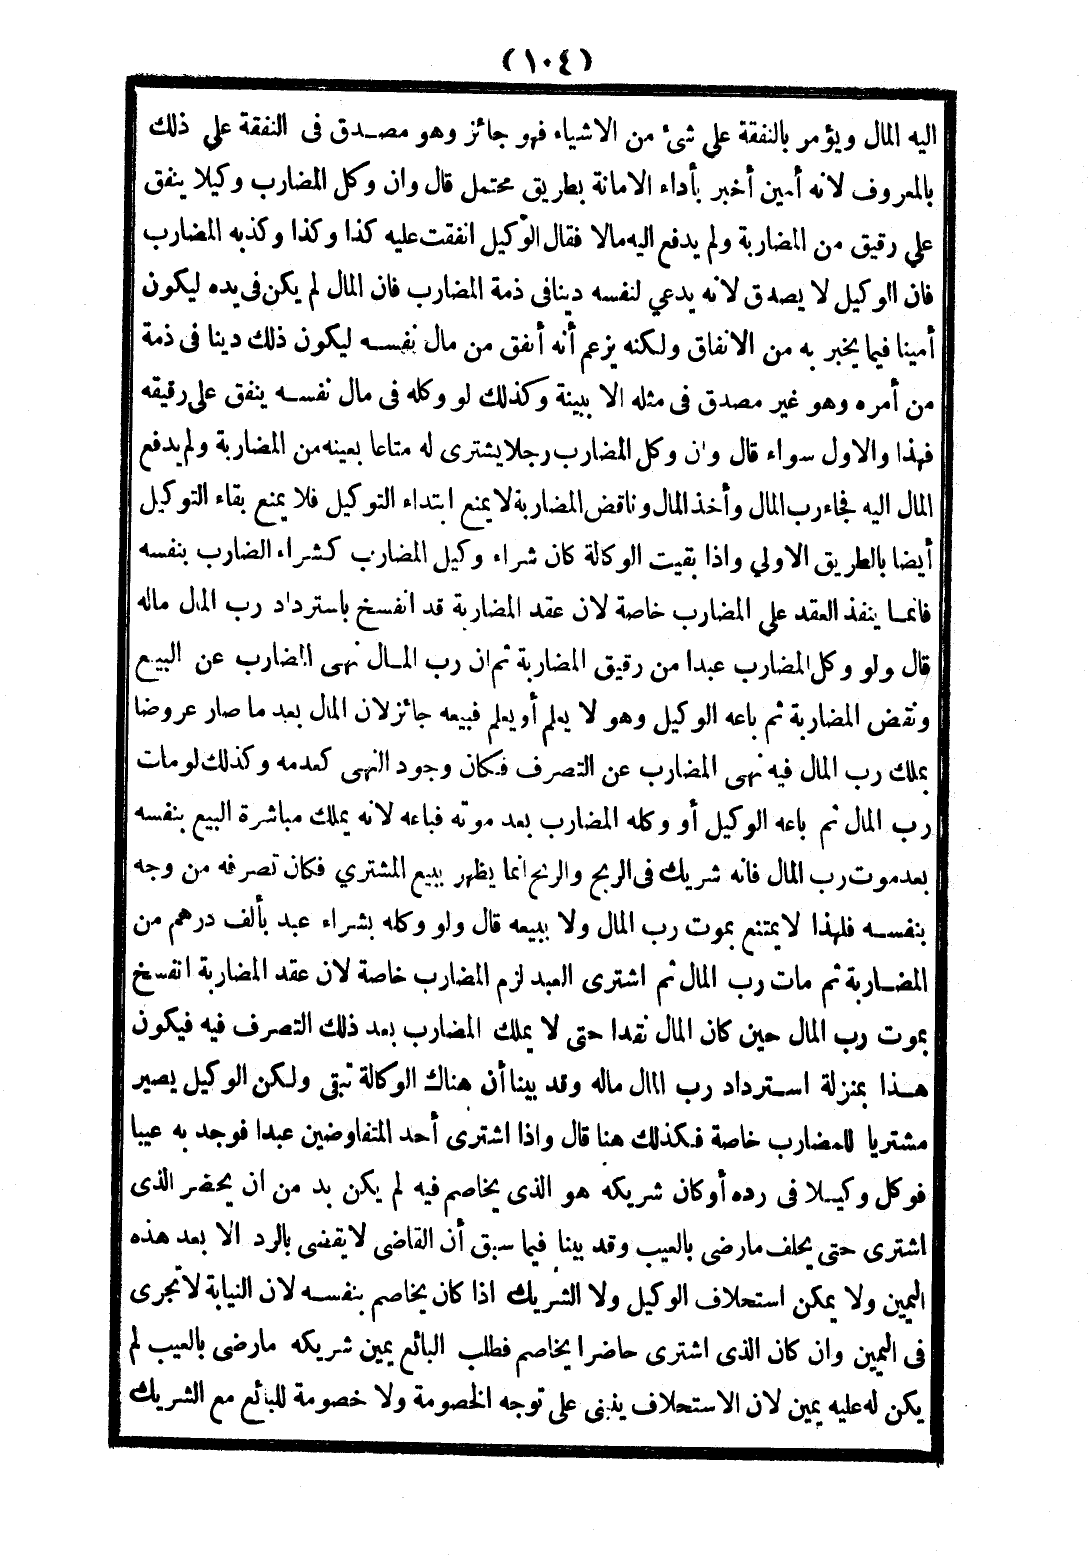 (١٠٤)
اليه المال ويؤمر بالنفقة علي شئ من الاشياء فهو جائز وهو مصدق فى النفقة علي ذلك
بالمعروف لانه أمين أخبر بأداء الامانة بطريق محتمل قال وان وكل المضارب وكيلا ينفق
علي رقيق من المضاربة ولم يدفع اليه مالا فقال الوكيل انفقت عليه كذا وكذا وكذبه المضارب
فان الوكيل لا يصدق لانه يدعي لنفسه دينا فى ذمة المضارب فان المال لم يكن فى يده ليكون
أمينا فيما يخبر به من الانفاق ولكنه يزعم أنه أنفق من مال نفسه ليكون ذلك دينا فى ذمة
من أمره وهو غير مصدق فى مثله الا ببينة وكذلك لو وكله فى مال نفسه ينفق علي رقيقه
فهذا والاول سواء قال وان وكل المضارب رجلا يشترى له متاعا بعينه من المضاربة ولم يدفع
المال اليه فجاء رب المال وأخذ المال وناقض المضاربة لا يمنع ابتداء التوكيل فلا يمنع بقاء التوكيل
أيضا بالطريق الاولي واذا بقيت الوكالة كان شراء وكيل المضارب كشراء الضارب بنفسه
فانما ينفذ العقد علي المضارب خاصة لان عقد المضاربة قد انفسخ باسترداد رب المال ماله
قال ولو وكل المضارب عبدا من رقيق المضاربة ثم ان رب المال نهى المضارب عن البيع
ونقض المضاربة ثم باعه الوكيل وهو لا يعلم أو يعلم فبيعه جائز لان المال بعد ما صار عروضا
يملك رب المال فيه نهى المضارب عن التصرف فكان وجود النهى كعدمه وكذلك لو مات
رب المال ثم باعه الوكيل أو وكله المضارب بعد موته فباعه لانه يملك مباشرة البيع بنفسه
بعد موت رب المال فانه شريك فى الربح والربح انما يظهر ببيع المشتري فكان تصرفه من وجه
بنفسه فلهذا لا يمتنع بموت رب المال ولا ببيعه قال ولو وكله بشراء عبد بألف درهم من
المضاربة ثم مات رب المال ثم اشترى العبد لزم المضارب خاصة لان عقد المضاربة انفسخ
بموت رب المال حين كان المال نقدا حتى لا يملك المضارب بعد ذلك التصرف فيه فيكون
هذا بمنزلة استرداد رب المال ماله وقد بينا أن هناك الوكالة تبقى ولكن الوكيل يصير
مشتريا للمضارب خاصة فكذلك هنا قال واذا اشترى أحد المتفاوضين عبدا فوجد به عيبا
فوكل وكيلا فى رده أو كان شريكه هو الذى يخاصم فيه لم يكن بد من ان يحضر الذى
اشترى حتى يحلف ما رضى بالعيب وقد بينا فيما سبق أن القاضى لا يقضى بالرد الا بعد هذه
اليمين ولا يمكن استحلاف الوكيل ولا الشريك اذا كان يخاصم بنفسه لان النيابة لا تجرى
فى اليمين وان كان الذى اشترى حاضرا يخاصم فطلب البائع يمين شريكه ما رضى بالعيب لم
يكن له عليه يمين لان الاستحلاف ينبنى على توجه الخصومة ولا خصومة للبائع مع الشريك